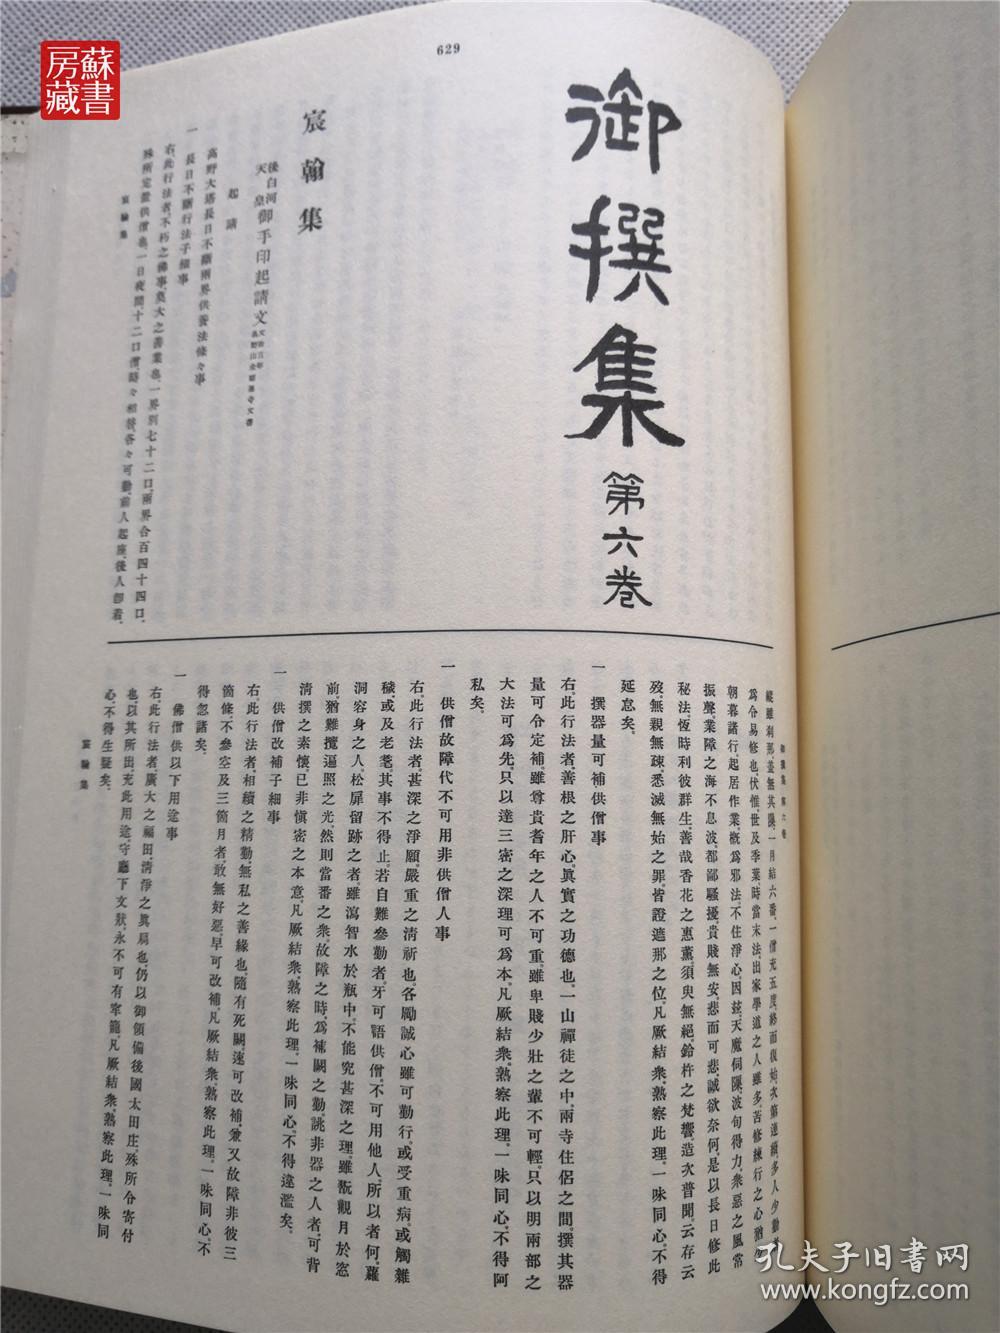 蘇書
房藏
629
御撰集 第六卷
宸翰集
後白河
天皇
御手印起請文
起請
高野大塔長日不斷兩界供養法條々事
一 長日不斷行法子細事
右、此行法者、不朽之佛事、莫大之善業也、一界別七十二口、兩界合百四十四口、
殊所定置供僧也、一日夜間、十二口僧、時々相替、各々可勤、前人起座、後人卽着、
宸翰集
御撰集 第六卷
縱雖刹那並無其隙、一月結六番、一僧充五度、終而復始、次第連續、多人少勤
爲令易修也、伏惟、世及季葉、時當末法、出家學道之人雖多、苦修練行之心
朝暮諸行、起居作業、概爲邪法、不住淨心、因茲、天魔伺隙、波旬得力、衆惡之風常
振聲、業障之海不息波、都鄙騷擾、貴賤無安、悲而可悲、誠欲奈何、是以長日修此
秘法、恆時利彼群生、善哉香花之惠薰、須臾無絕、鈴杵之梵響、造次普聞、云存云
歿、無親無疎、悉滅無始之罪、皆證遮那之位、凡厥結衆、熟察此理、一味同心、不得
延怠矣。
一 撰器量可補供僧事
右、此行法者、善根之肝心、眞實之功德也、一山禪徒之中、兩寺住侶之間、撰其器
量可令定補、雖尊貴耆年之人不可重、雖卑賤少壯之輩不可輕、只以明兩部之
大法可爲先、只以達三密之深理可爲本、凡厥結衆、熟察此理、一味同心、不得阿
私矣。
一 供僧故障代不可用非供僧人事
右、此行法者、甚深之淨願、嚴重之清祈也、各勵誠心雖可勤行、或受重病、或觸雜
穢、或及老耄、其事不得止、若自難參勤者、牙可語供僧、不可用他人、所以者何、蘿
洞容身之人、松扉留跡之者、雖瀉智水於瓶中、不能究甚深之理、雖翫觀月於窓
前、猶難攬遍照之光、然則當番之衆、故障之時、爲補闕之勤、誂非器之人者、可背
淸撰之素懷、已非愼密之本意、凡厥結衆、熟察此理、一味同心、不得違濫矣。
一 供僧改補子細事
右、此行法者、相續之精勤、無私之善緣也、隨有死闕、速可改補、兼又故障非彼三
箇條、不參空及三箇月者、敢無好惡、早可改補、凡厥結衆、熟察此理、一味同心、不
得忽諸矣。
一 佛僧供以下用途事
右、此行法者、廣大之福田、淸淨之眞扃也、仍以御領備後國太田庄、殊所令寄付
也、以其所出、充此用途、守廳下文狀、永不可有牢籠、凡厥結衆、熟察此理、一味同
心、不得生疑矣、
宸翰集
孔夫子旧书网
www.kongfz.com